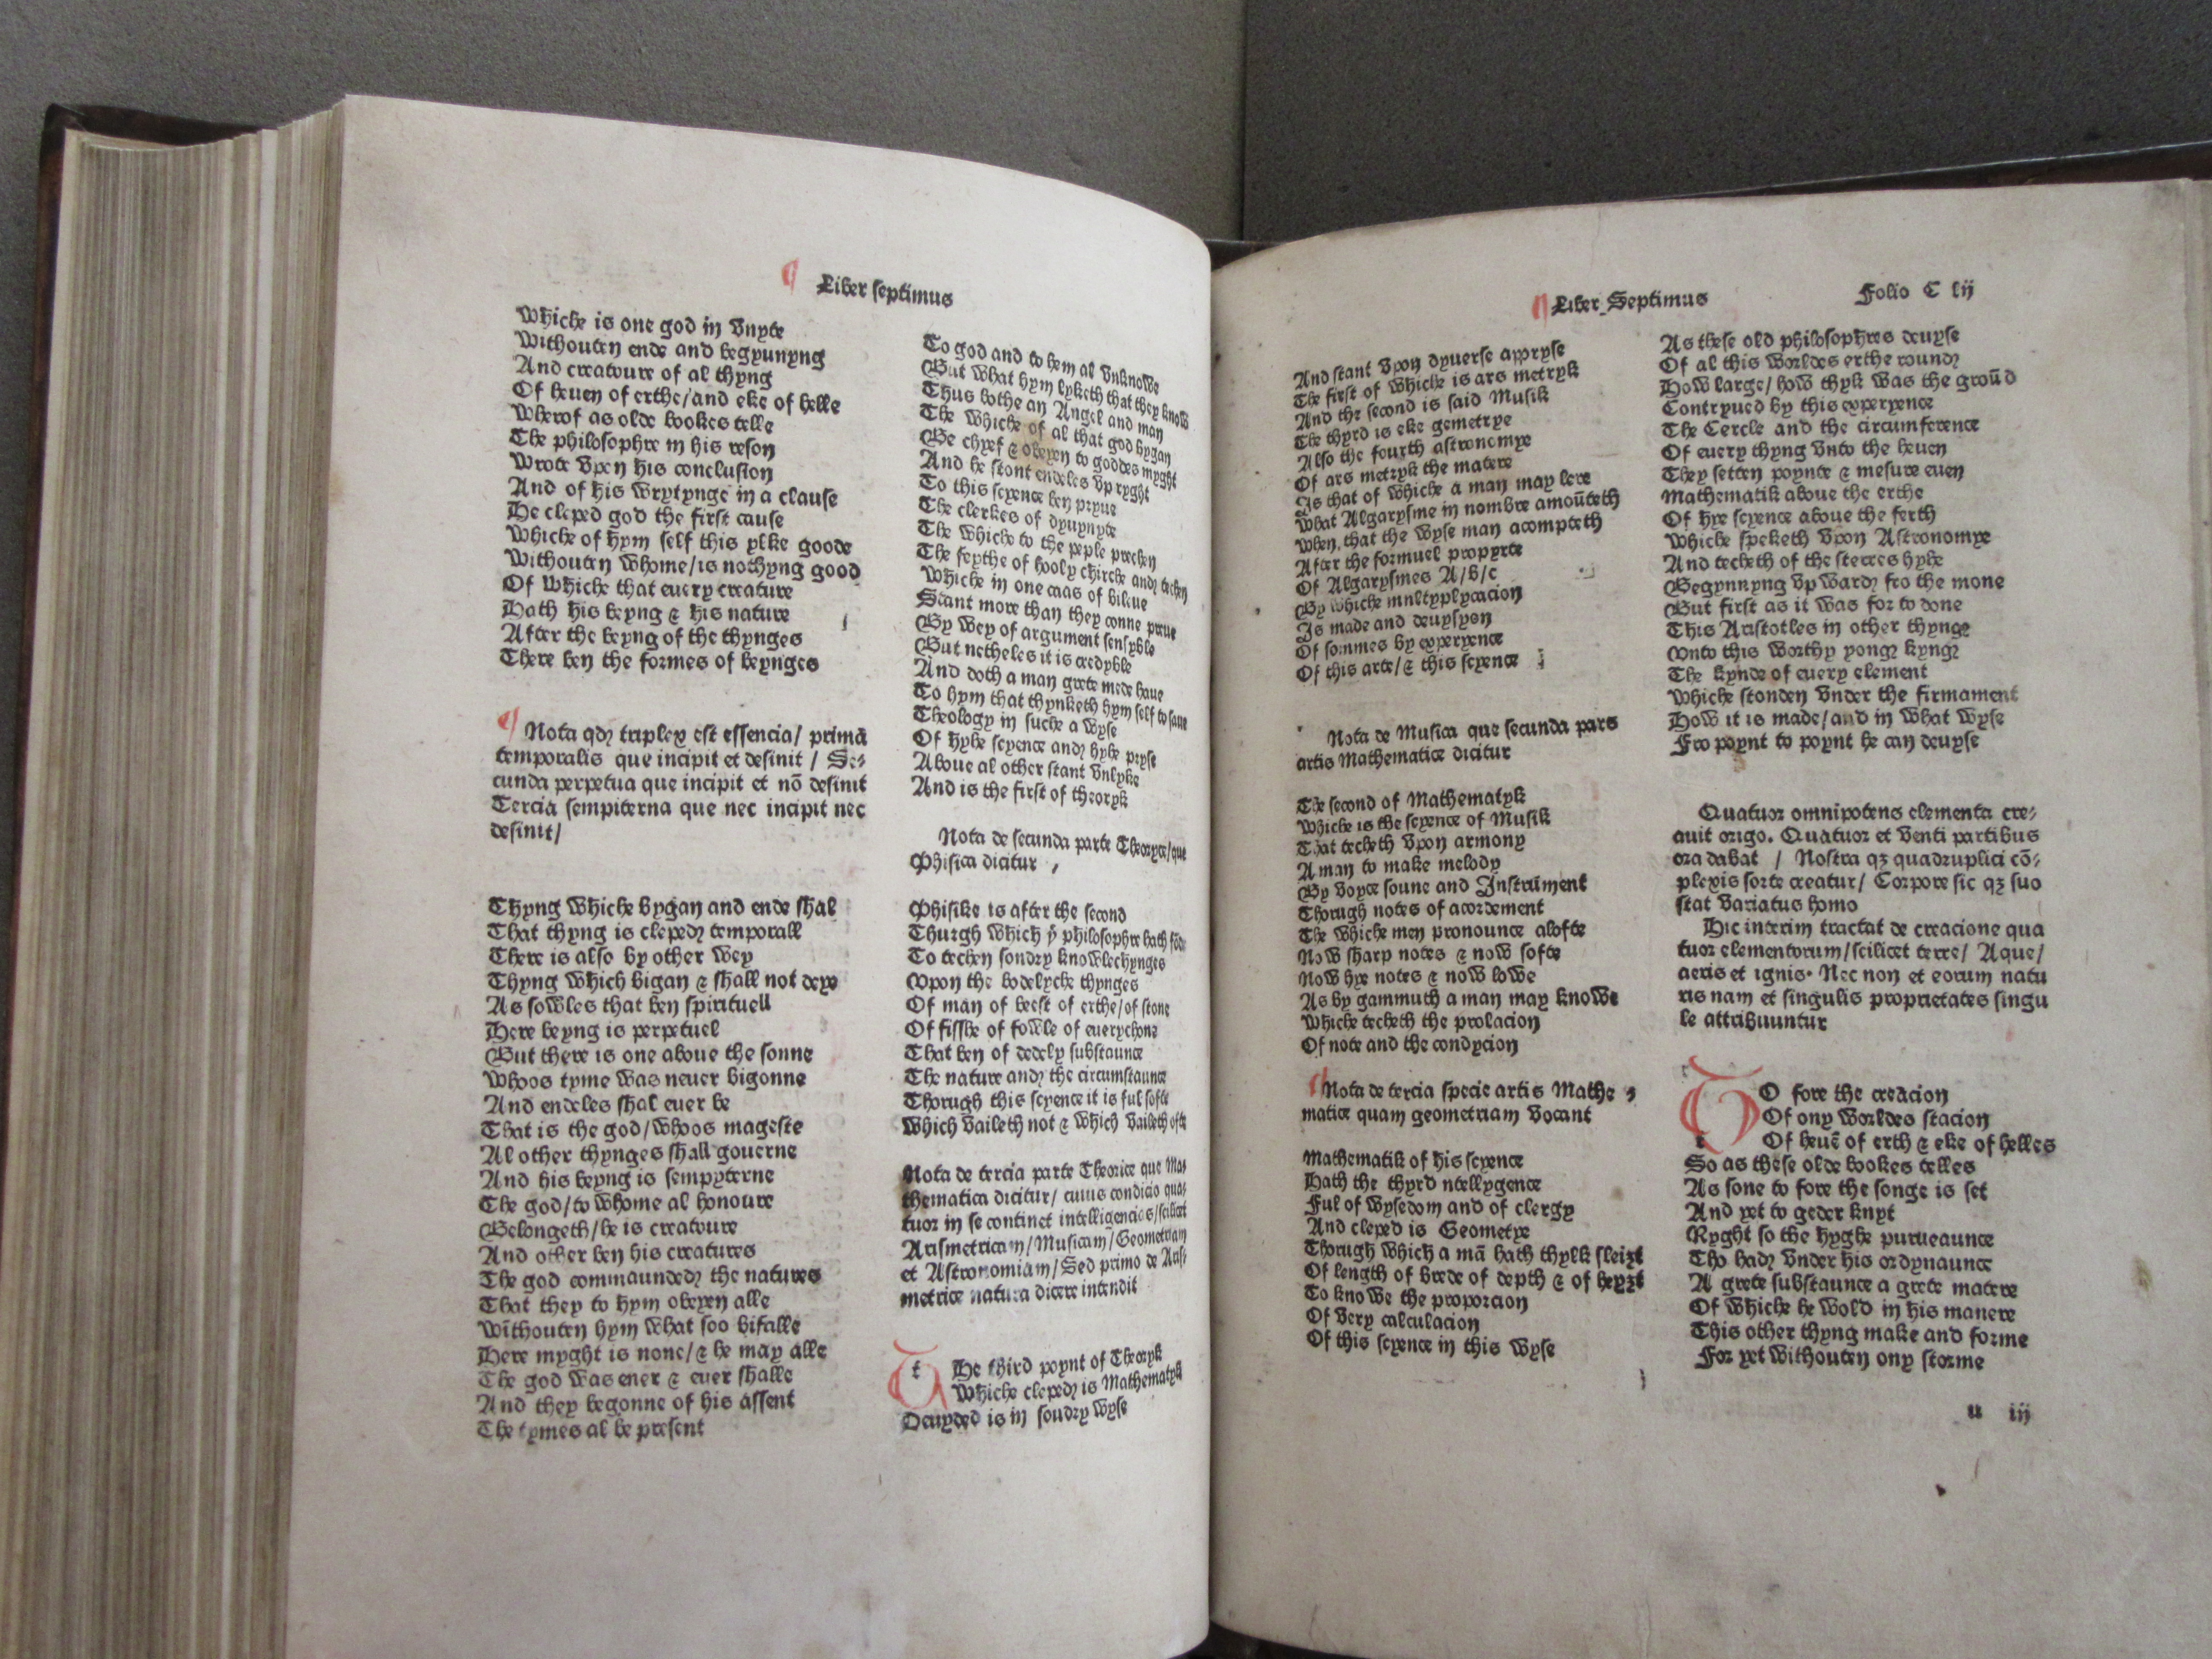 ¶ Liber septimus
Whiche is one god in vnyte
Withouten ende and begynnyng
And creatoure of al thyng
Of heuen of erthe/and eke of helle
Wherof as olde bookes telle
The philosophre in his reson
Wrote vpon his conclusion
And of his wrytynge in a clause
He cleped god the first cause
Whiche of hym self this ylke goode
Withouten whome/is nothyng good
Of whiche that euery creature
Hath his beyng & his nature
After the beyng of the thynges
There ben the formes of beynges
¶ Nota qdꝫ triplex est essencia/ primā
temporalis que incipit et desinit / Se⸗
cunda perpetua que incipit et nō desinit
Tercia sempiterna que nec incipit nec
desinit/
Thyng whiche bygan and ende shal
That thyng is cleped temporall
There is also by other wey
Thyng which bigan & shall not deye
As sowles that ben spirituell
Here beyng is perpetuel
But there is one aboue the sonne
Whoos tyme was neuer bigonne
And endeles shal euer be
That is the god/whoos mageste
Al other thynges shall gouerne
And his beyng is sempyterne
The god/to whome al honoure
Belongeth/he is creatoure
And other ben his creatures
The god commaunded the natures
That they to hym obeyen alle
Withouten hym what soo bifalle
Here myght is none/& he may alle
The god was euer & euer shalle
And they begonne of his assent
The tymes al be present
To god and to hem al vnknowe
But what hym lyketh that they know
Thus bothe an Angel and man
The whiche of al that god bygan
Be chyef & obeyen to goddes myght
And he stont endeles vp ryght
To this scyence ben pryue
The clerkes of dyuynyte
The whiche to the peple prechen
The feythe of hooly chirche and techen
Whiche in one caas of bileue
Stant more than they conne preue
By wey of argument sensyble
But netheles it is credyble
And doth a man grete mede haue
To hym that thynketh hym self to saue
Theology in suche a wyse
Of hyhe scyence and hyhe pryse
Aboue al other stant vnlyke
And is the first of theoryk
Nota de secunda parte Theoryce/que
Phisica dicitur ,
Phisike is after the second
Thurgh which yͤ philosophre hath fōd
To techen sondry knowlechynges
Vpon the bodelyche thynges
Of man of beest of erthe/of stone
Of fisshe of fowle of euerychone
That ben of dedely substaunce
The nature and the circumstaunce
Thorugh this scyence it is ful softe
Which vaileth not & which vaileth ofte
Nota de tercia parte Theorice que Ma⸗
thematica dicitur/ cuius condicio qua⸗
tuor in se continet intelligencias/scilicet
Arismetricam/Musicam/Geometriam
et Astronomiam/Sed primo de Aris⸗
metrice natura dicere intendit
tHe third poynt of Theoryk
Whiche cleped is Mathematyk
Deuyded is in soudry wyse
¶ Liber Septimus Folio C lij
And stant vpon dyuerse appryse
The first of whiche is ars metryk
And the second is said Musik
The thyrd is eke gemetrye
Also the fourth astronomye
Of ars metryk the matere
Is that of whiche a man may lere
What Algarysme in nombre amoūteth
When, that the wyse man acompteth
After the formuel propyrte
Of Algarysmes A/b/c
By whiche mnltyplycacion
Is made and deuysyon
Of sommes by experyence
Of this arte/& this scyence
Nota de Musica que secunda pars
artis Mathematice dicitur
The second of Mathematyk
Whiche is the scyence of Musik
That techeth vpon armony
A man to make melody
By voyce soune and Instrument
Thorugh notes of acordement
The whiche men pronounce alofte
Now sharp notes & now softe
Now hye notes & now lowe
As by gammuth a man may knowe
Whiche techeth the prolacion
Of note and the condycion
¶ Nota de tercia specie artis Mathe⸗
matice quam geometriam vocant
Mathematik of his scyence
Hath the thyrd ntellygence
Ful of wysedom and of clergy
And cleped is Geometrye
Thorugh which a mā hath thylk sleiȝt
Of length of brede of depth & of heyȝt
To knowe the proporcion
Of very calculacion
Of this scyence in this wyse
As these old philosophres deuyse
Of al this worldes erthe round
How large/how thyk was the groūd
Contryued by this experyence
The Cercle and the circumference
Of euery thyng vnto the heuen
They setten poynte & mesure euen
Mathematik aboue the erthe
Of hye scyence aboue the ferth
Whiche speketh vpon Astronomye
And techeth of the sterres hyhe
Begynnyng vpward fro the mone
But first as it was for to done
This Aristotles in other thynge
Vnto this worthy yong kyng
The kynde of euery element
Whiche stonden vnder the firmament
How it is made/and in what wyse
Fro poynt to poynt he can deuyse
Quatuor omnipotens elementa cre⸗
auit origo. Quatuor et venti partibus
ora dabat / Nostra qꝫ quadruplici cō⸗
plexis sorte creatur/ Corpore sic qꝫ suo
stat variatus homo
Hic interim tractat de creacione qua
tuor elementorum/scilicet terre/ Aque/
aeris et ignis. Nec non et eorum natu
ris nam et singulis proprietates singu
le attribuuntur
tO fore the creacion
Of ony worldes stacion
Of heuē of erth & eke of helles
So as these olde bookes telles
As sone to fore the songe is set
And yet to geder knyt
Ryght so the hyghe purueaunce
Tho had vnder his ordynaunce
A grete substaunce a grete matere
Of whiche he wold in his manere
This other thyng make and forme
For yet withouten ony storme
u iij